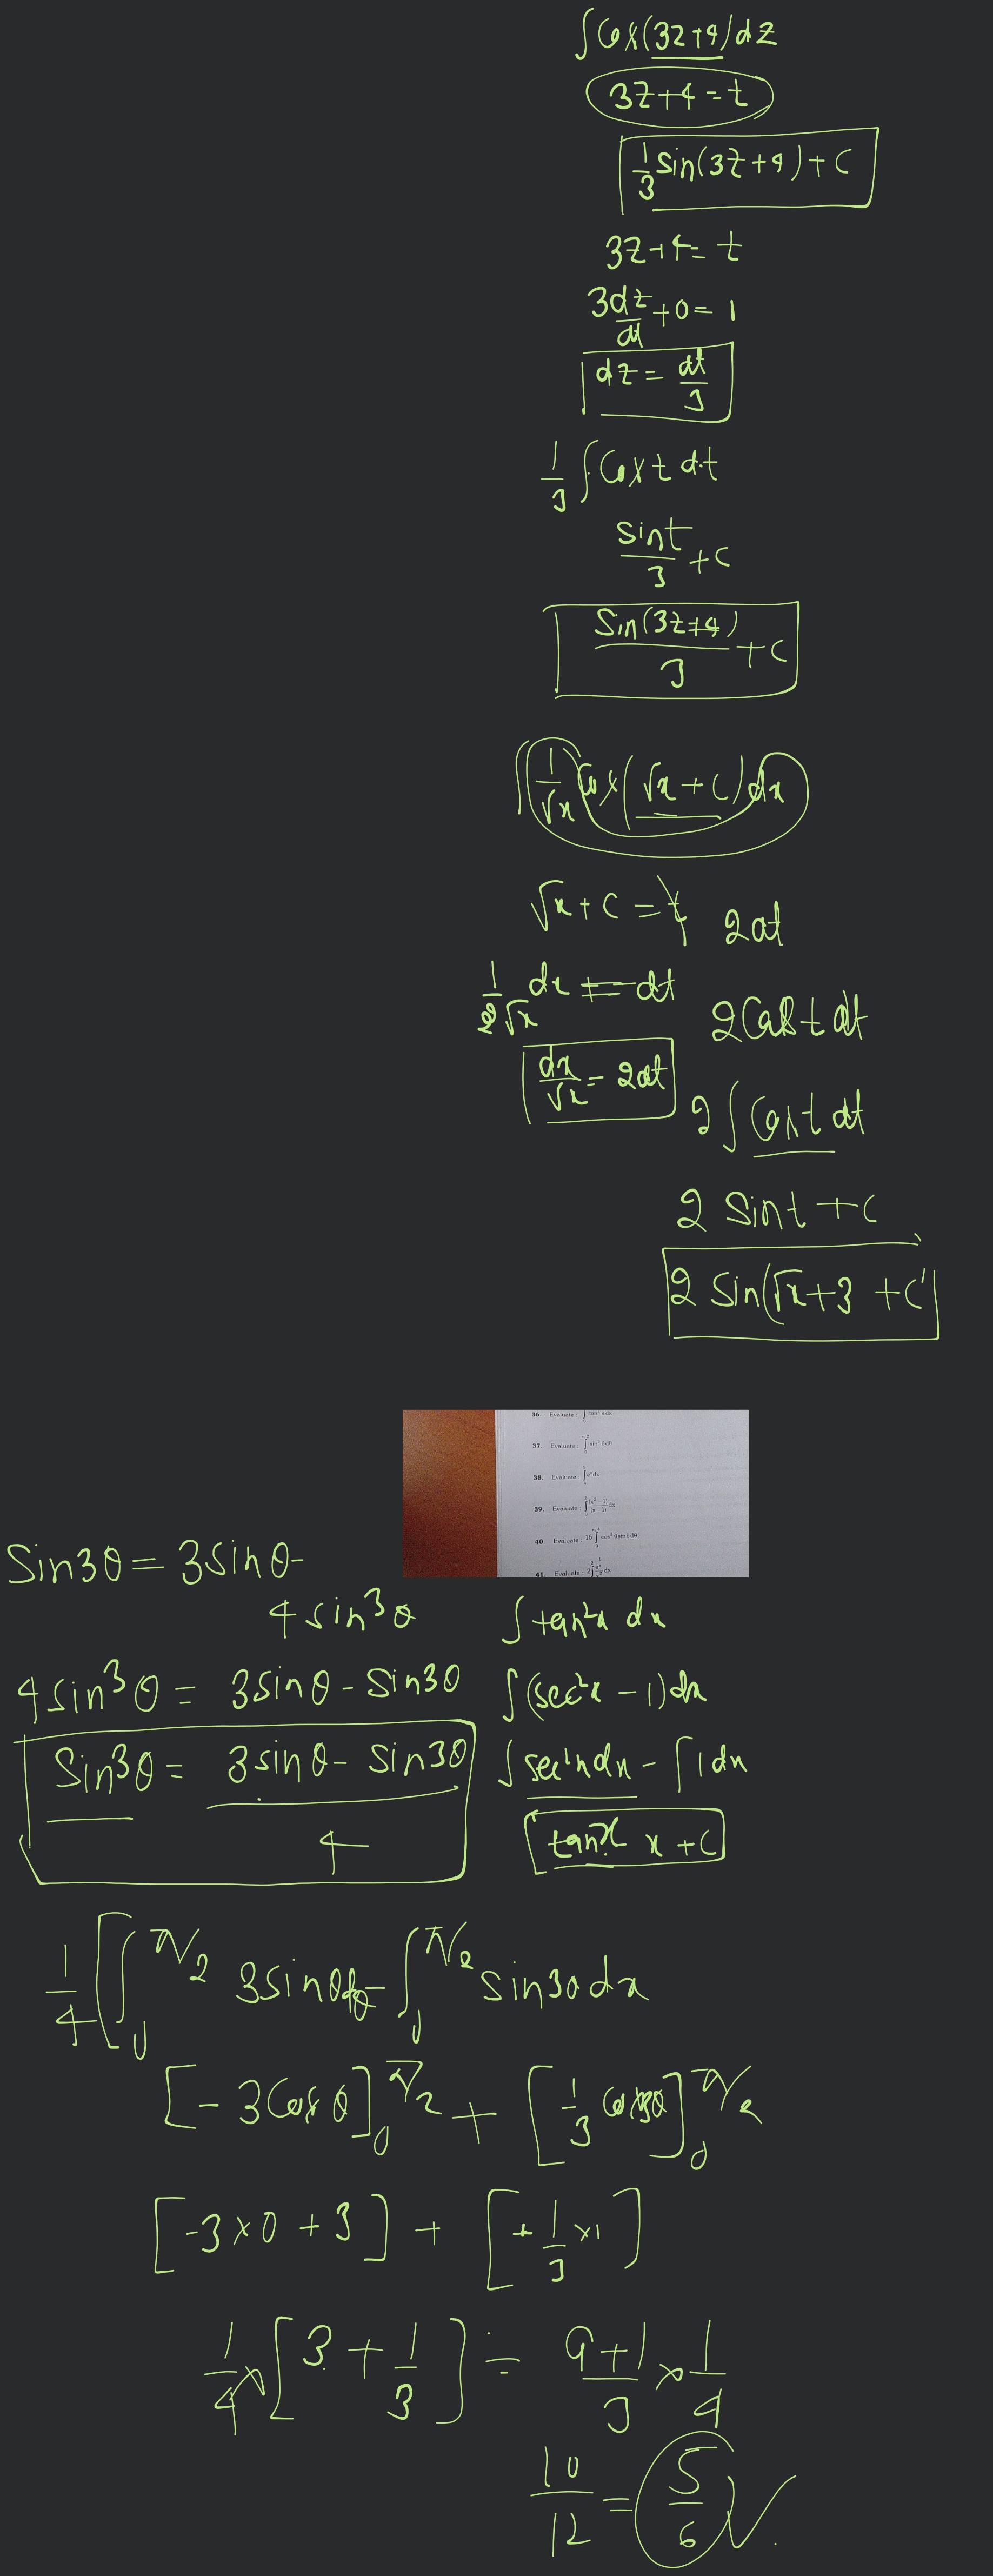 ∫Cos(3z+4)dz
3z+4=t
1/3 sin(3z+4)+C
3z+4=t
3dz/dt+0=1
dz=dt/3
1/3∫Cos t dt
sint/3+C
Sin(3z+4)/3+C
∫1/√x Cos(√x+C)dx
√x+C=t
2dt
1/2√x dx=dt
2Cos t dt
dx/√x=2dt
2∫Cos t dt
2 Sint+C
2 Sin(√x+3+C'
36. Evaluate
37. Evaluate
38. Evaluate
39. Evaluate
40. Evaluate
41. Evaluate
Sin3θ=3sinθ-
4sin³θ
∫tan²x dx
4sin³θ=3sinθ-Sin3θ
∫(sec²x-1)dx
Sin³θ=3sinθ-Sin3θ/4
∫sec²xdx-∫1dx
tanx x+C
1/4[∫₀^π/2 3sinθdθ-∫₀^π/2 sin3θdx
[-3Cosθ]₀^π/2+[1/3 cos3θ]₀^π/2
[-3×0+3]+[+1/3×1]
1/4×[3+1/3]=9+1/3×1/4
10/12=5/6